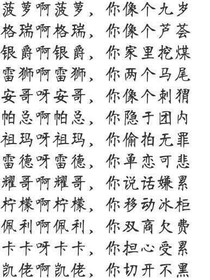 菠萝啊菠萝，你像个九岁
格瑞啊格瑞，你像个芦荟
银爵啊银爵，你家里挖煤
雷狮啊雷狮，你两个马尾
安哥呀安哥，你像个刺猬
帕总啊帕总，你隐于团内
祖玛呀祖玛，你偷拍无罪
雷德呀雷德，你单恋可悲
耀哥啊耀哥，你说话嫌累
柠檬啊柠檬，你移动冰柜
佩利啊佩利，你双商欠费
卡卡呀卡卡，你担心受累
凯佬啊凯佬，你切开不黑